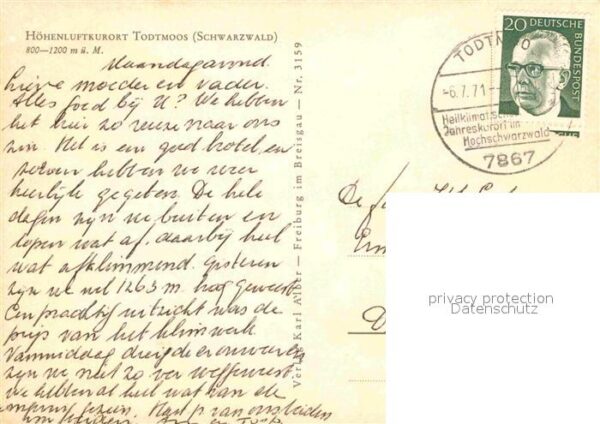 HÖHENLUFTKURORT TODTMOOS (SCHWARZWALD)
800—1200 m ü. M.
Maandagavond.
Lieve moeder en vader.
Alles goed bij U? We hebben
het hier zo reuze naar ons
zin. Het is een goed hotel, en
hebben we weer
heerlijk gegeten. De hele
dagen zijn we buiten en
lopen wat af, daarbij heel
wat afklimmend. Gisteren
zijn we wel 1263 m. hoog geweest
Een prachtig uitzicht was de
prijs van het klimwerk.
Vanmiddag dreigde er onweer en
zijn we niet zo ver weggeweest
We hebben al heel wat van de
omgeving gezien. van ons beiden
Verlag Karl Alber — Freiburg im Breisgau — Nr. 3159
TODTMOO
-6.7.71--
Heilklimatischer
Jahreskurort im
Hochschwarzwald
7867
20 DEUTSCHE
BUNDESPOST
De fam.
privacy protection
Datenschutz